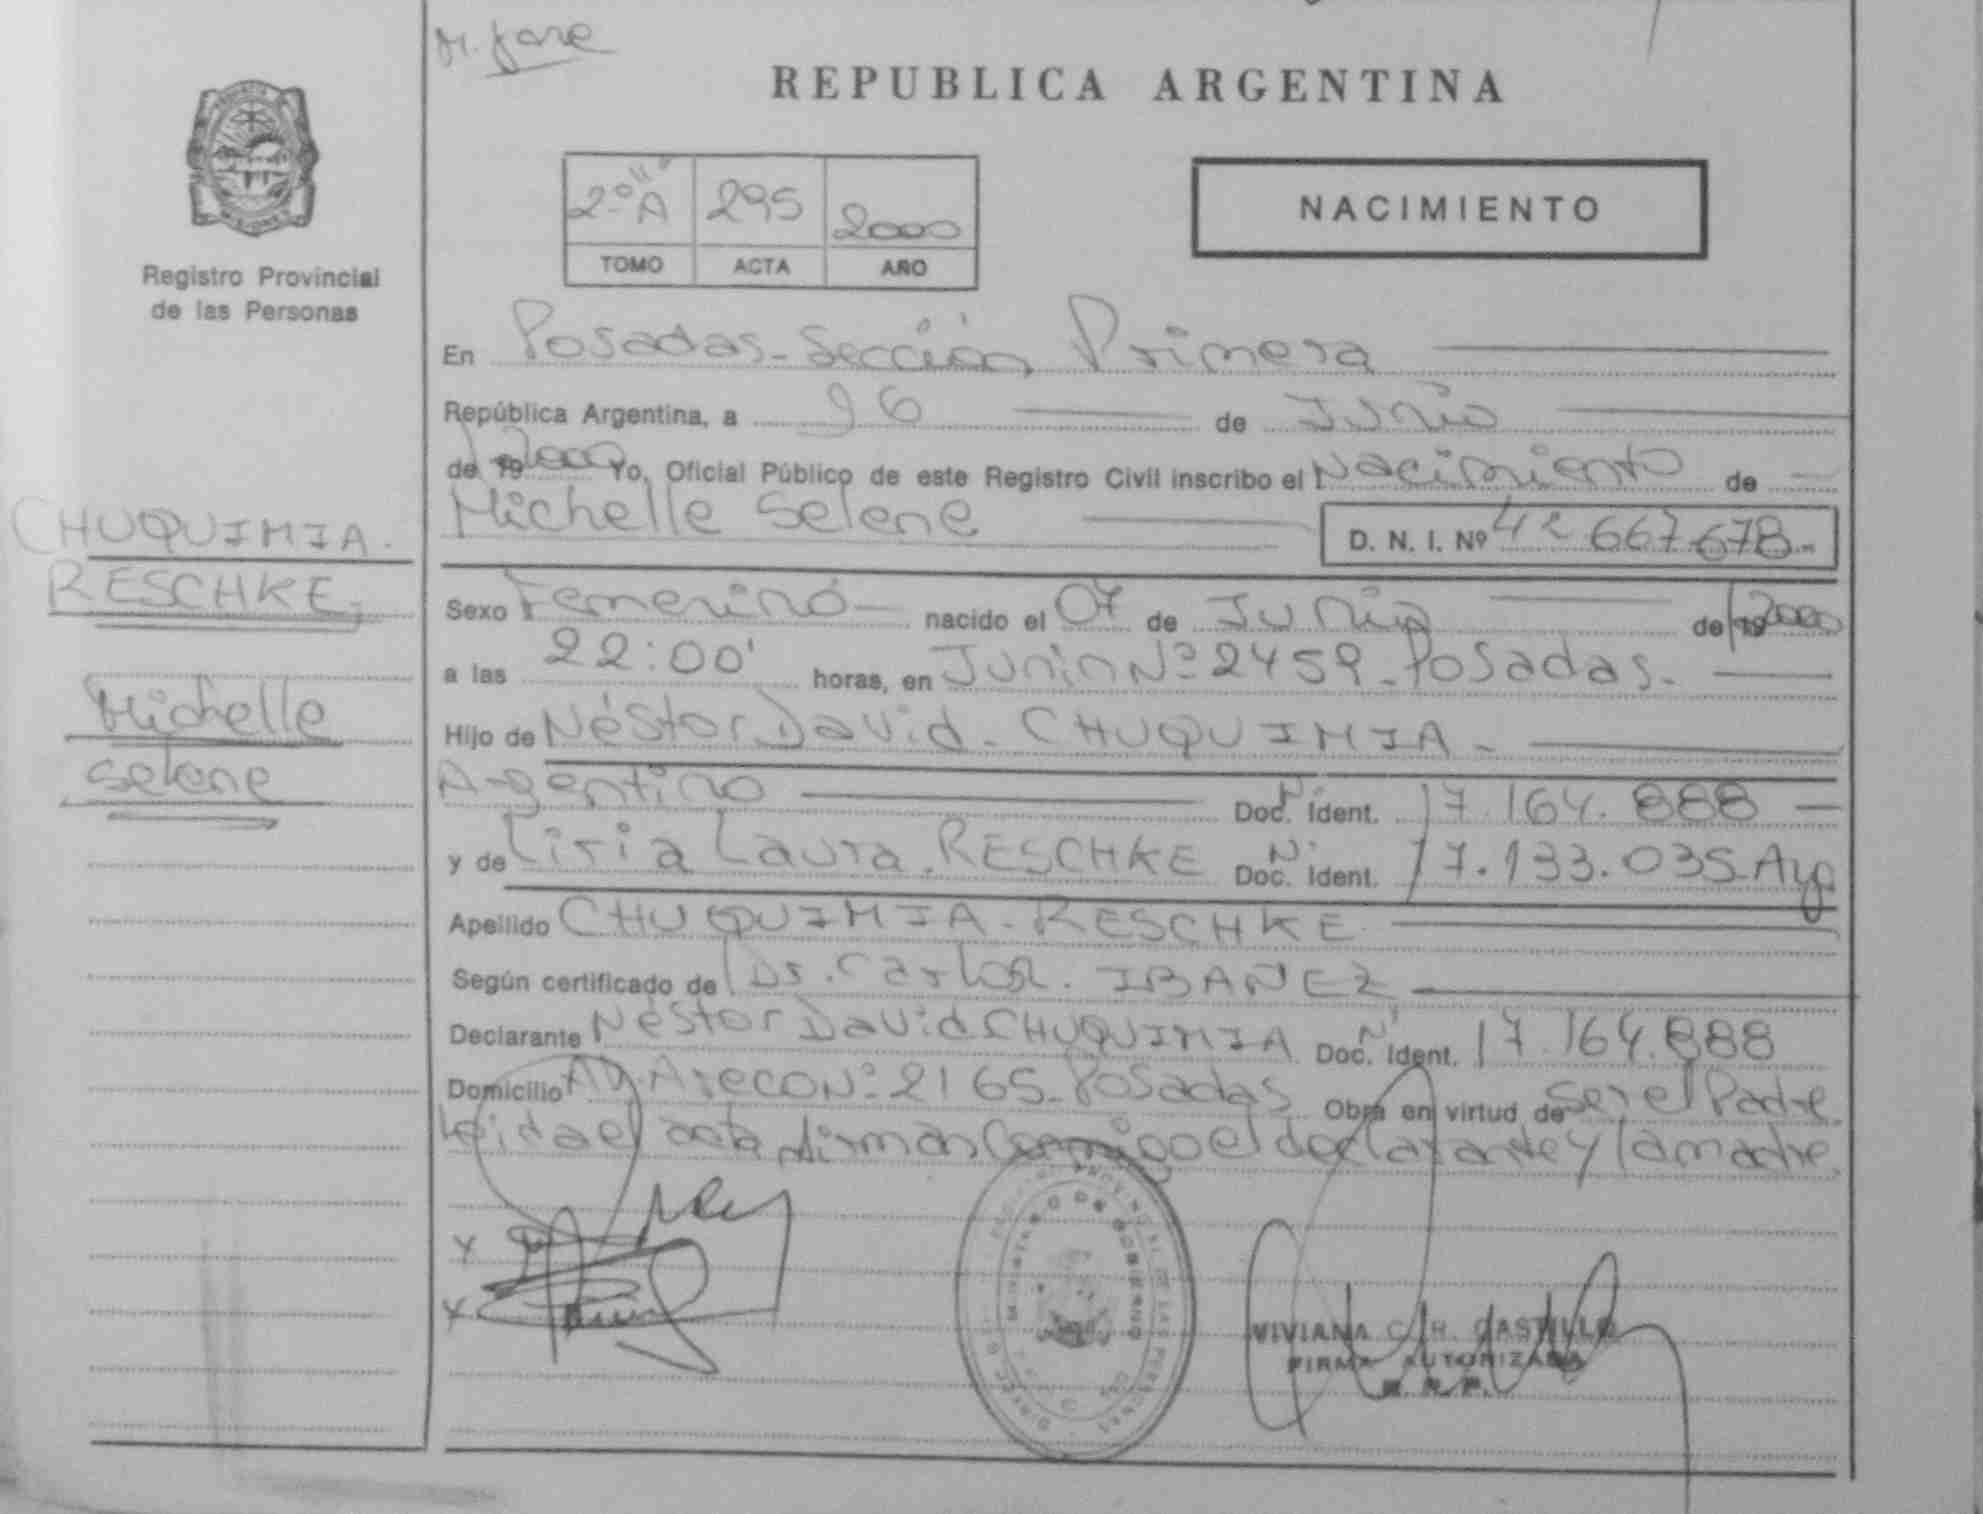 M. Jose
REPUBLICA ARGENTINA
2º A 295 2000
TOMO ACTA AÑO
NACIMIENTO
Registro Provincial
de las Personas
En Posadas - Sección Primera
República Argentina, a 16 de Junio
de 19 2000 Yo, Oficial Público de este Registro Civil inscribo el Nacimiento de
Michelle Selene D. N. I. Nº 42 667 678.-
CHUQUIMIA.
RESCHKE,
Michelle
Selene
Sexo Femenino nacido el 07 de Junio de 19 2000
a las 22:00' horas, en Junin Nº 2459 - Posadas.-
Hijo de Néstor David - CHUQUIMIA -
Argentino Doc. Ident. Nº 17.164.888 -
y de Liria Laura. RESCHKE Doc. Ident. Nº 17.133.035 Arg
Apellido CHUQUIMIA - RESCHKE
Según certificado de Dr. Carlos. IBAÑEZ
Declarante Néstor David CHUQUIMIA Doc. Ident. Nº 17.164.888
Domicilio Av. Areco Nº 2165 - Posadas Obra en virtud de Ser el Padre
Leida el acta firman Conmigo el declarante y la madre.
MINISTERIO DE GOBIERNO
VIVIANA C. H. CASTILLO
FIRMA AUTORIZADA
R. P. P.